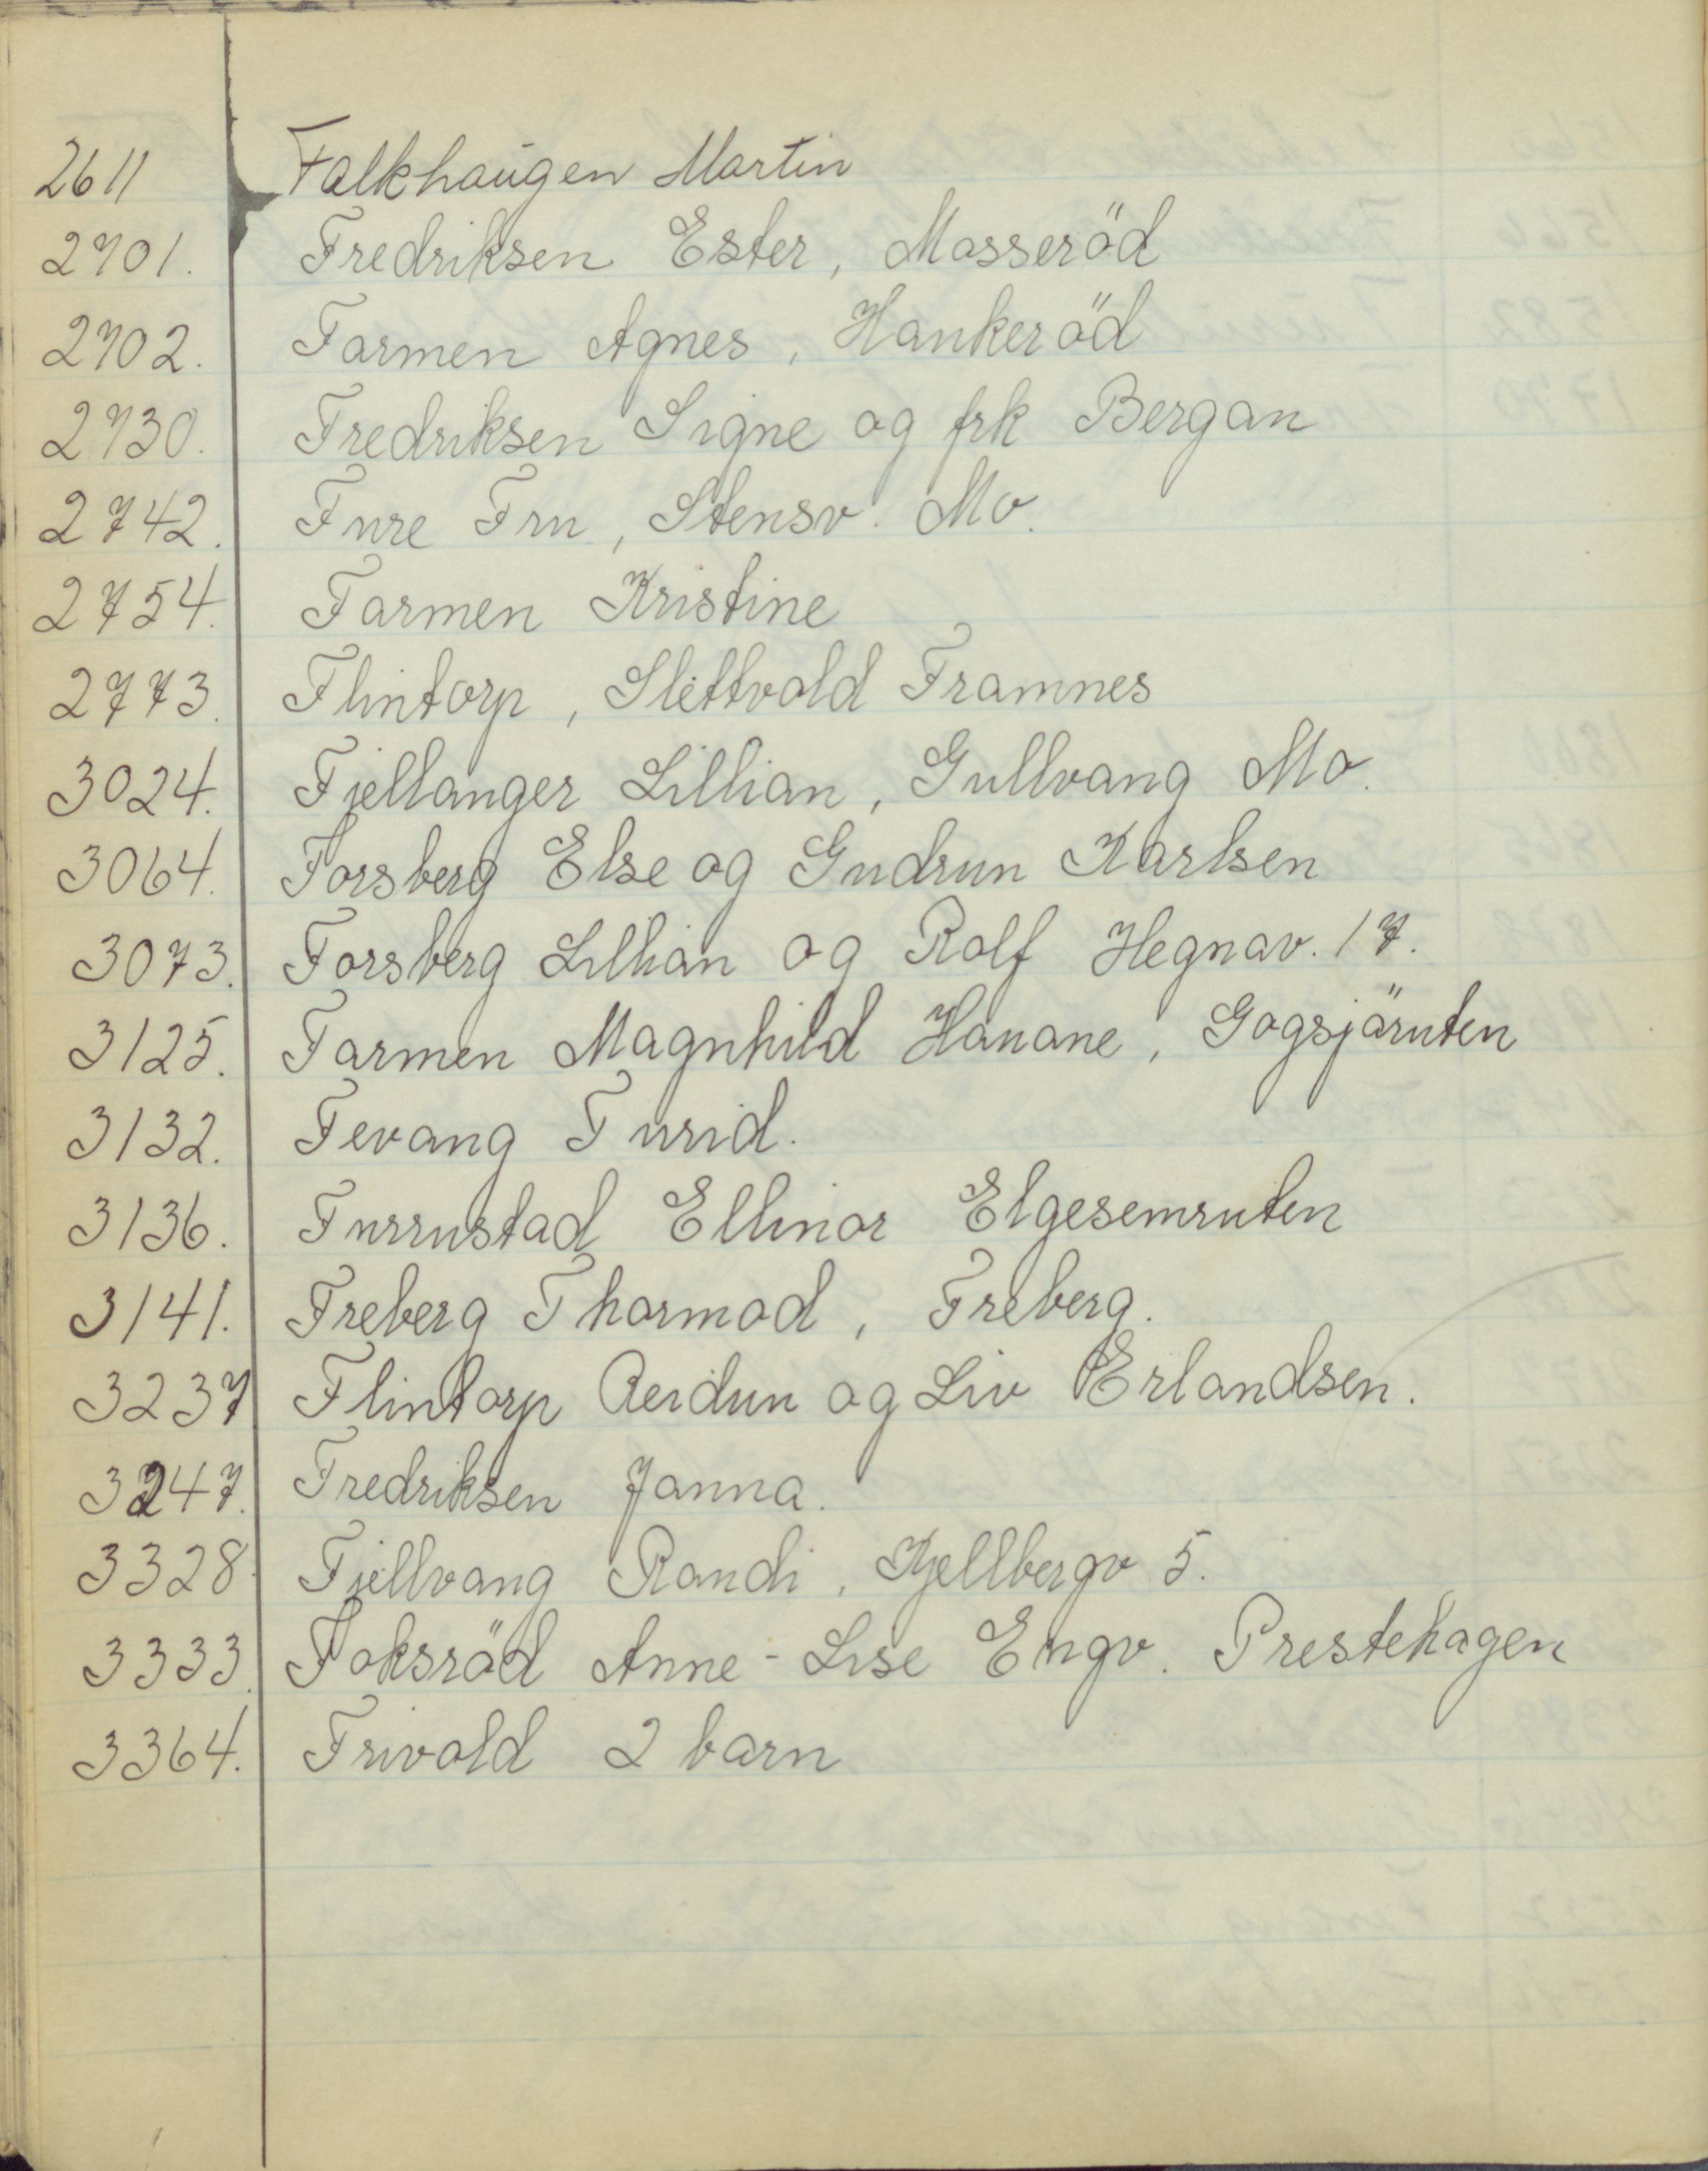 2611 Falkhaugen Martin
2701. Fredriksen Ester, Masseröd
2702. Farmen Agnes, Hankeröd
2730. Fredriksen Signe og frk Bergan
2742. Fure Fru, Stensv. Mo.
2754. Farmen Kristine
2773. Flintorp, Slettvold Framnes
3024. Fjellanger Lillian, Gullvang Mo.
3064. Forsberg Else og Gudrun Karlsen
3073. Forsberg Lillian og Rolf Hegnav. 17.
3125. Farmen Magnhild Hauane, Gogsjöruten
3132. Fevang Turid.
3136. Furrustad Ellinor Elgesemruten
3141. Freberg Thormod, Freberg.
3237 Flintorp Reidun og Liv Erlandsen.
3247. Fredriksen Janna.
3328. Fjellvang Randi, Kjellbergv 5.
3333. Foksröd Anne-Lise Engv. Prestehagen
3364. Frivold 2 barn